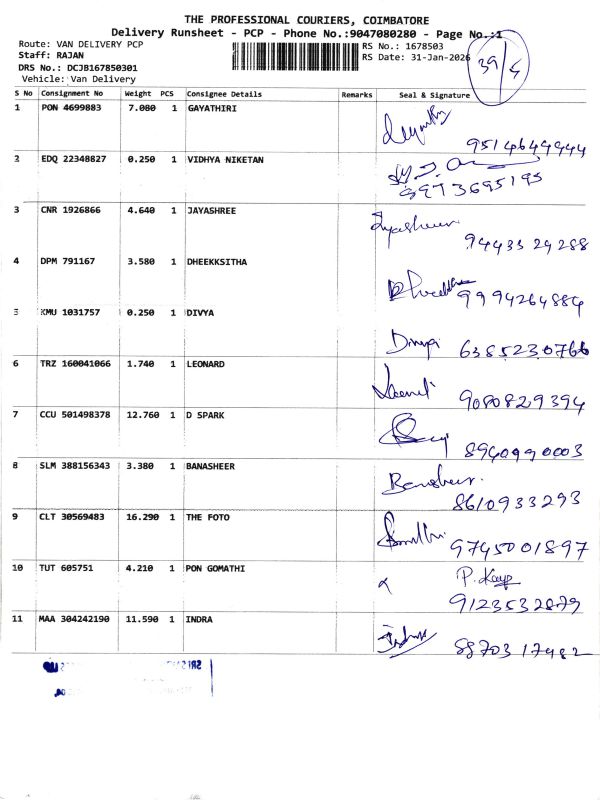 THE PROFESSIONAL COURIERS, COIMBATORE
Delivery Runsheet - PCP - Phone No.:9047080280 - Page No.:1
Route: VAN DELIVERY PCP
RS No.: 1678503
Staff: RAJAN
RS Date: 31-Jan-2026
39/5
DRS No.: DCJB167850301
Vehicle: Van Delivery
S No Consignment No Weight PCS Consignee Details Remarks Seal & Signature
1 PON 4699883 7.080 1 GAYATHIRI
9514649444
2 EDQ 22348827 0.250 1 VIDHYA NIKETAN
3 CNR 1926866 4.640 1 JAYASHREE Jyasheer
9443329288
4 DPM 791167 3.580 1 DHEEKKSITHA
9994264884
5 KMU 1031757 0.250 1 DIVYA
6385230766
6 TRZ 160041066 1.740 1 LEONARD
9080829394
7 CCU 501498378 12.760 1 D SPARK
8940990003
8 SLM 388156343 3.380 1 BANASHEER Banasheer.
8610933293
9 CLT 30569483 16.290 1 THE FOTO
9745001897
10 TUT 605751 4.210 1 PON GOMATHI
9123532879
11 MAA 304242190 11.590 1 INDRA
8870317482